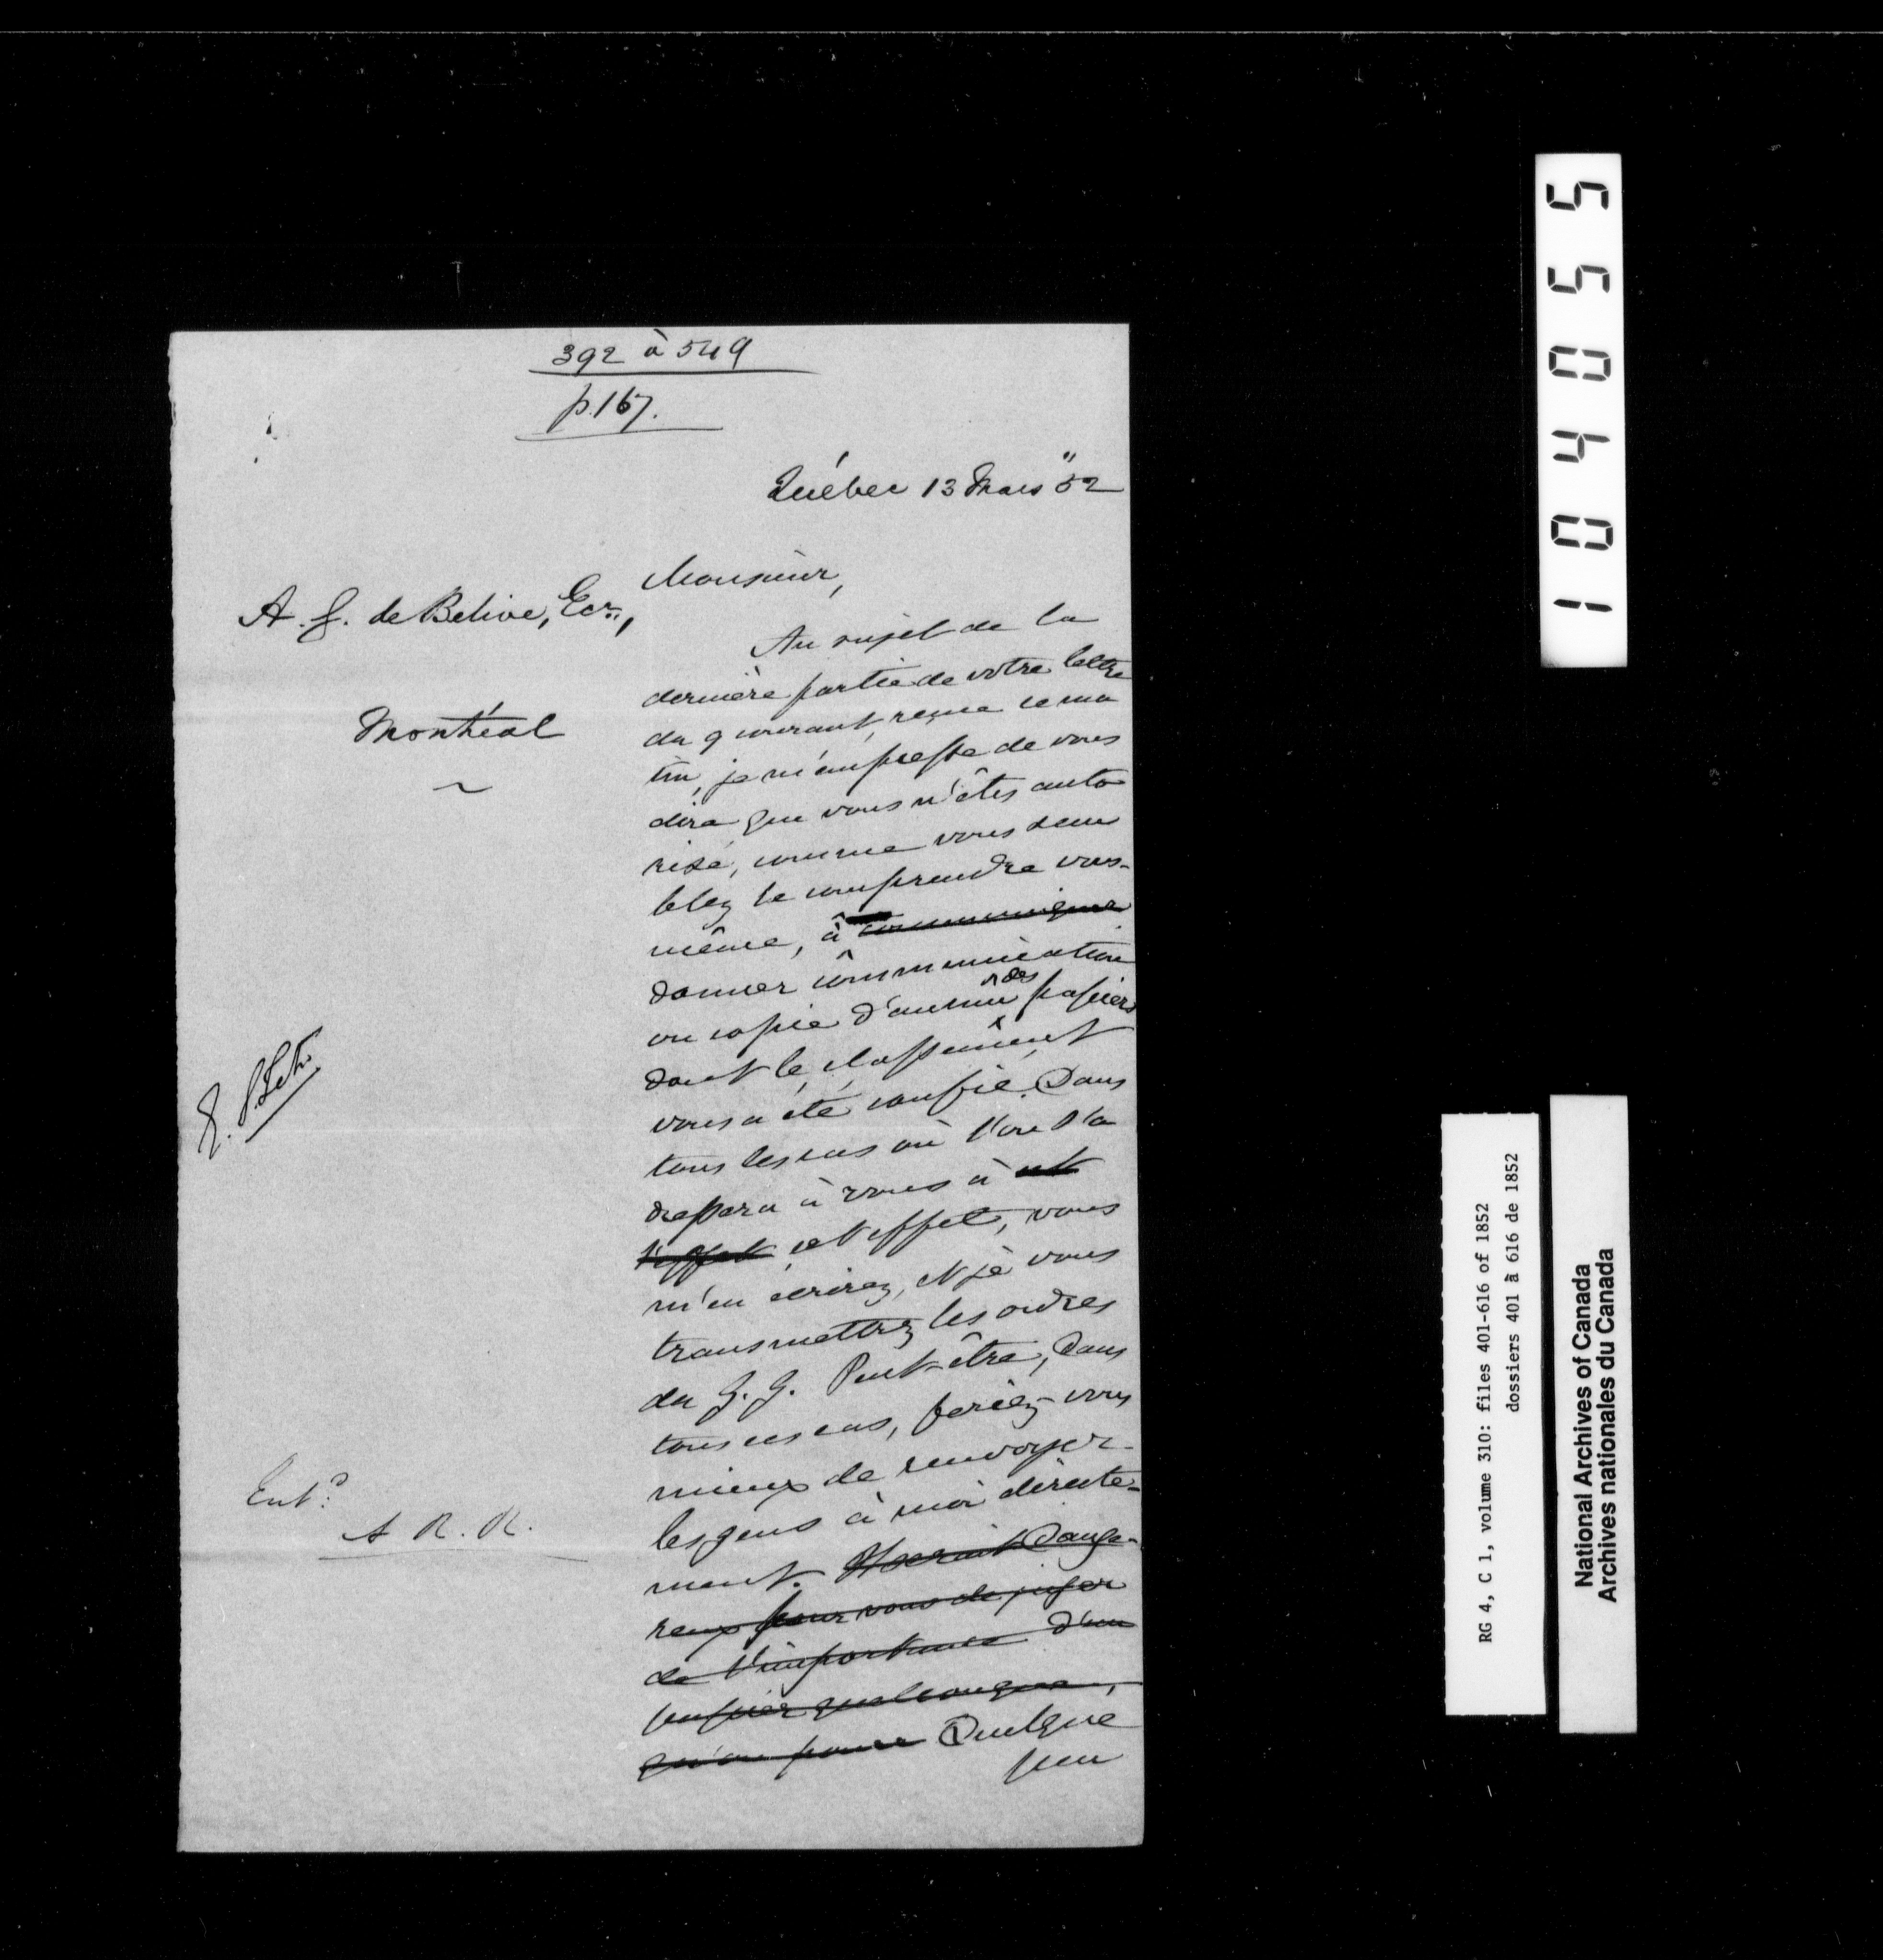 392 à 549
p. 167.
Québec 13 Mars "52
A. G. de Belive, Ecr.,
Montréal
Monsieur,
Au sujet de la
dernière partie de votre lettre
du 9 courant, reçue ce ma
tin, je m'empresse de vous
dire que vous n'êtes auto
risé, comme vous sem
blez le comprendre vous-
même, à communiquer
donner communication
ou copie d'aucun des papiers
dont le classement
vous a été confié. Dans
tous les cas où l'on s'a
dressera à vous à cet
l'effet cet effet, vous
m'en écrirez, et je vous
transmettrez les ordres
du G. G. Peut-être, dans
tous ces cas, feriez-vous
mieux de renvoyer
les gens à moi directe-
ment. Il serait dange-
reux pour vous de juger
de l'importance d'un
papier quelconque,
qu'on pourr Quelque
peu
Ent.d
A R. R.
1 0 4 0 5 5
RG 4, C 1, volume 310: files 401-616 of 1852
dossiers 401 à 616 de 1852
National Archives of Canada
Archives nationales du Canada